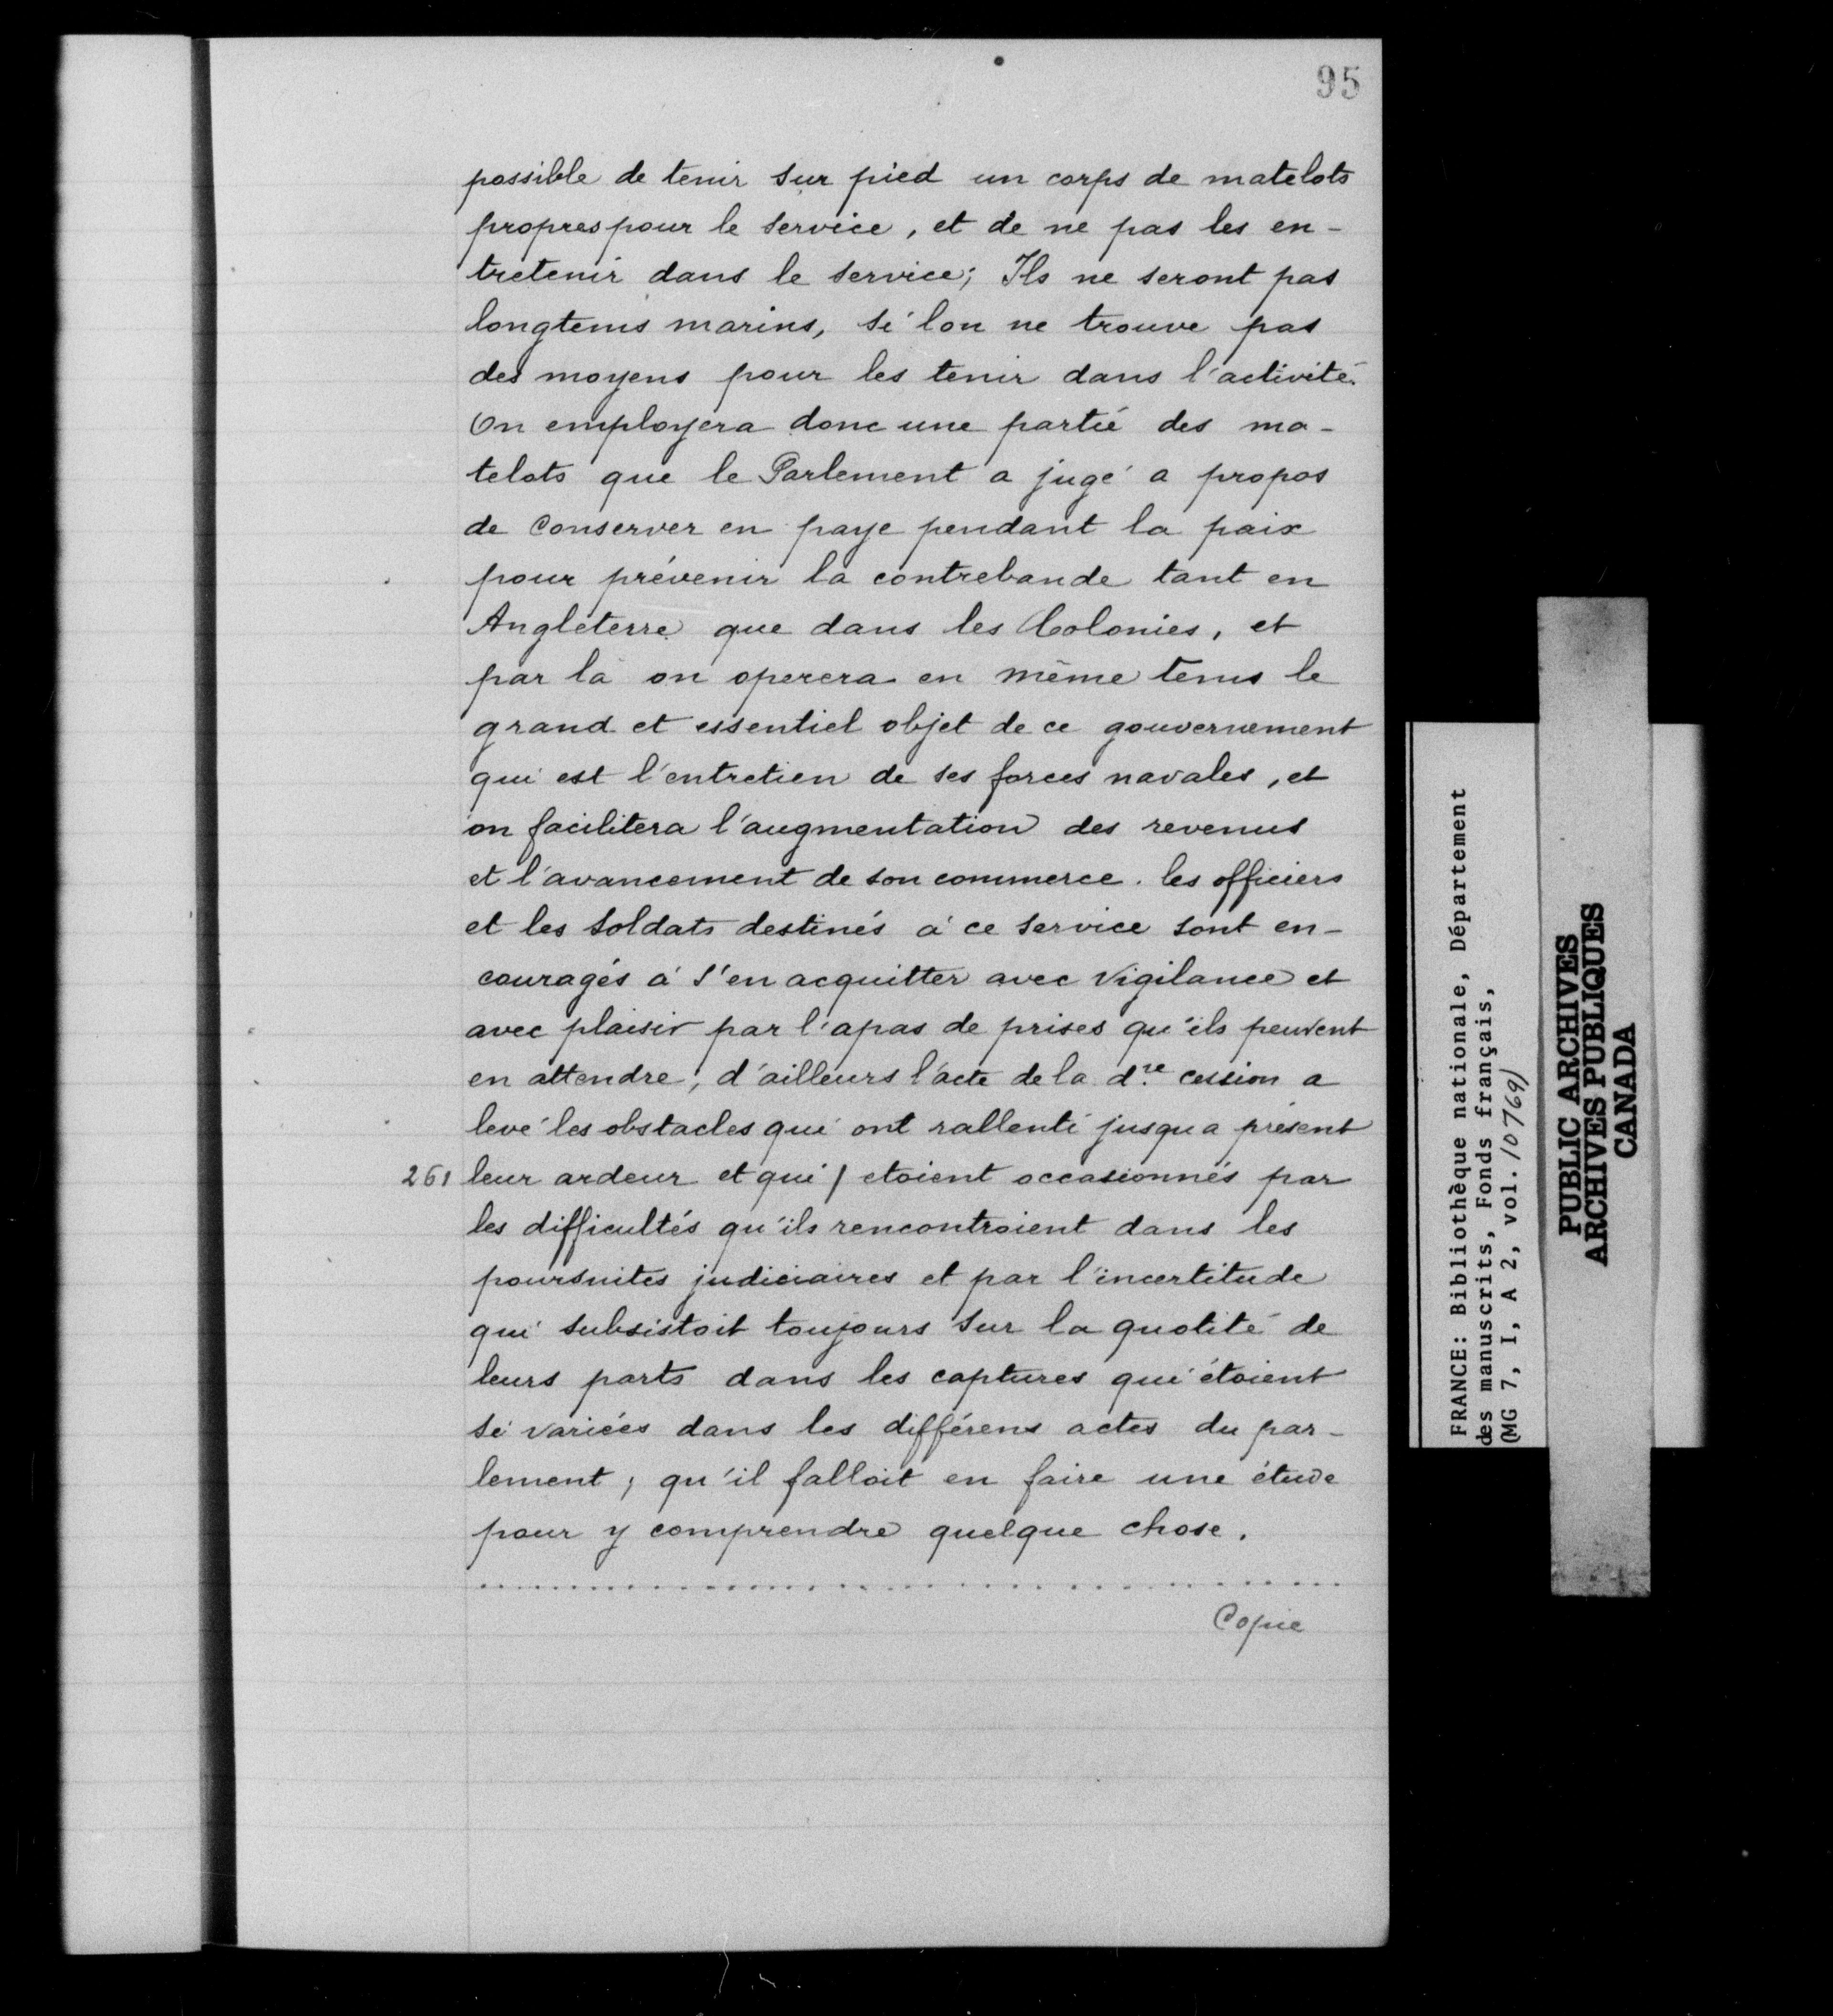 95
possible de tenir sur pied un corps de matelots
propres pour le service, et de ne pas les en-
tretenir dans le service; Ils ne seront pas
longtems marins, si lon ne trouve pas
des moyens pour les tenir dans l'activité.
On employera donc une partie des ma-
telots que le Parlement a jugé a propos
de Conserver en paye pendant la paix
pour prévenir la contrebande tant en
Angleterre que dans les Colonies, et
par là on operera en même tems le
grand et essentiel objet de ce gouvernement
qui est l'entretien de ses forces navales, et
on facilitera l'augmentation des revenus
et l'avancement de son commerce. les officiers
et les soldats destinés à ce service sont en-
couragés à s'en acquitter avec vigilance et
avec plaisir par l'apas de prises qu'ils peuvent
en attendre; d'ailleurs l'acte de la d.re cession a
levé les obstacles qui ont rallenti jusqu a présent
261 leur ardeur et qui / etoient occasionnés par
les difficultés qu'ils rencontroient dans les
poursuites judiciaires et par l'incertitude
qui subsistoit toujours sur la quotité de
leurs parts dans les captures qui étoient
si variées dans les différens actes du par-
lement; qu'il falloit en faire une étude
pour y comprendre quelque chose.
........................................
Copie
FRANCE: Bibliothèque nationale, Département
des manuscrits, Fonds français,
(MG 7, I, A 2, vol. 10769)
PUBLIC ARCHIVES
ARCHIVES PUBLIQUES
CANADA